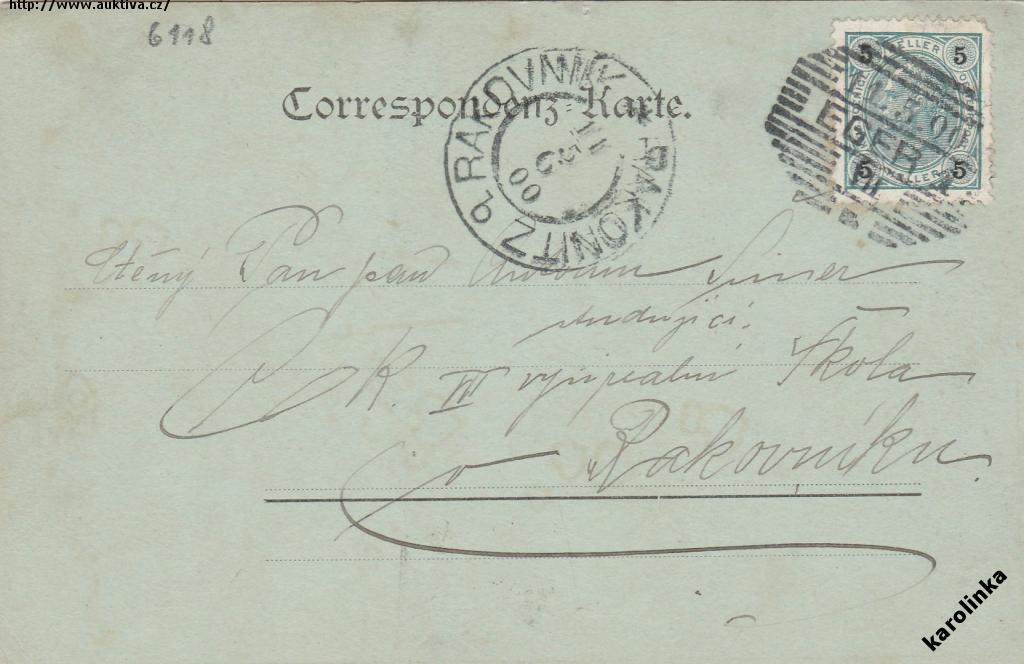 http://www.auktiva.cz/
6118
Correspondenz-Karte.
RAKOVNIK * RAKONITZ
00
5 HELLER 5
EGER
5 HELLER 5
Ctěný Pan pan Simer
studující.
K. III Škola
v Rakovníku
karolinka